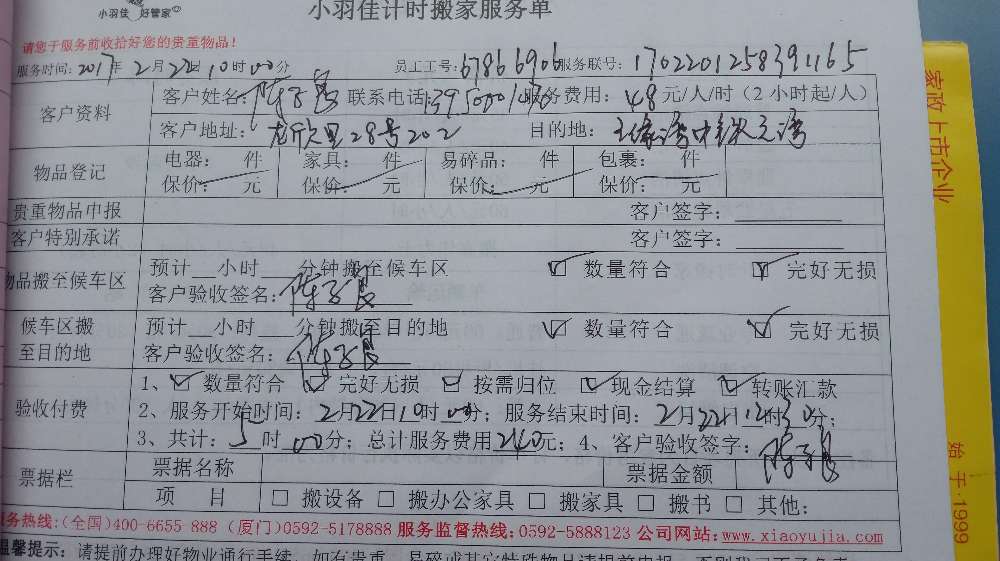 小羽佳 好管家
小羽佳计时搬家服务单
请您于服务前收拾好您的贵重物品！
服务时间：2017年2月22日10时00分 员工工号：67866906 服务联号：1702201258391165
客户资料
客户姓名： 联系电话： 服务费用：48元/人/时（2小时起/人）
客户地址：28号202 目的地：
物品登记
电器： 件 家具： 件 易碎品： 件 包裹： 件
保价： 元 保价： 元 保价： 元 保价： 元
贵重物品申报 客户签字：
客户特别承诺 客户签字：
物品搬至候车区
预计__小时__分钟搬至候车区 ☑ 数量符合 ☑ 完好无损
客户验收签名：
候车区搬至目的地
预计__小时__分钟搬至目的地 ☑ 数量符合 ☑ 完好无损
客户验收签名：
验收付费
1、☑ 数量符合 ☑ 完好无损 ☑ 按需归位 ☑ 现金结算 ☑ 转账汇款
2、服务开始时间：2月22日10时00分；服务结束时间：2月22日12时30分；
3、共计：5时00分；总计服务费用240元；4、客户验收签字：
票据栏
票据名称 票据金额
项 目 □ 搬设备 □ 搬办公家具 □ 搬家具 □ 搬书 □ 其他：
服务热线：(全国)400-6655-888 (厦门)0592-5178888 服务监督热线：0592-5888123 公司网站：www.xiaoyujia.com
温馨提示：请提前办理好物业通行手续
家政上市企业
始于·1999